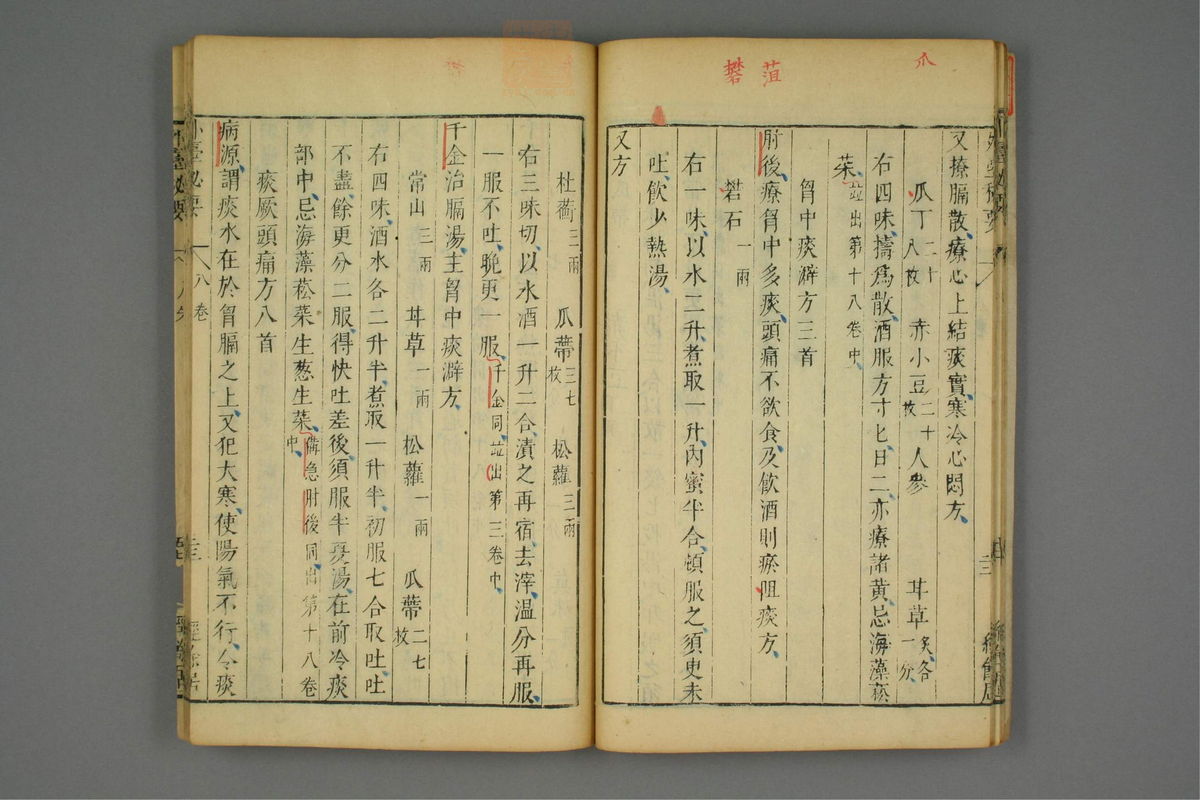 爪
菹
礬
又撩膈散療心上結痰實寒冷心悶方
瓜丁二十八枚 赤小豆二十枚 人參 甘草炙各一分
右四味擣爲散酒服方寸匕日二亦療諸黄忌海藻菘
菜並出第十八卷中
胷中痰澼方三首
肘後療胷中多痰頭痛不欲食及飲酒則瘀阻痰方
礬石一兩
右一味以水二升煮取一升內蜜半合頓服之須臾未
吐飲少熱湯
又方
杜蘅三兩 瓜蔕三七枚 松蘿三兩
右三味切以水酒一升二合漬之再宿去滓温分再服
一服不吐晚更一服千金同並出第三卷中
千金治膈湯主胷中痰澼方
常山三兩 甘草一兩 松蘿一兩 瓜蔕二七枚
右四味酒水各二升半煮取一升半初服七合取吐吐
不盡餘更分二服得快吐差後須服半夏湯在前冷痰
部中忌海藻菘菜生葱生菜備急肘後同出第十八卷中
痰厥頭痛方八首
病源謂痰水在於胷膈之上又犯大寒使陽氣不行令痰
外臺秘要
八卷
十三
經餘居